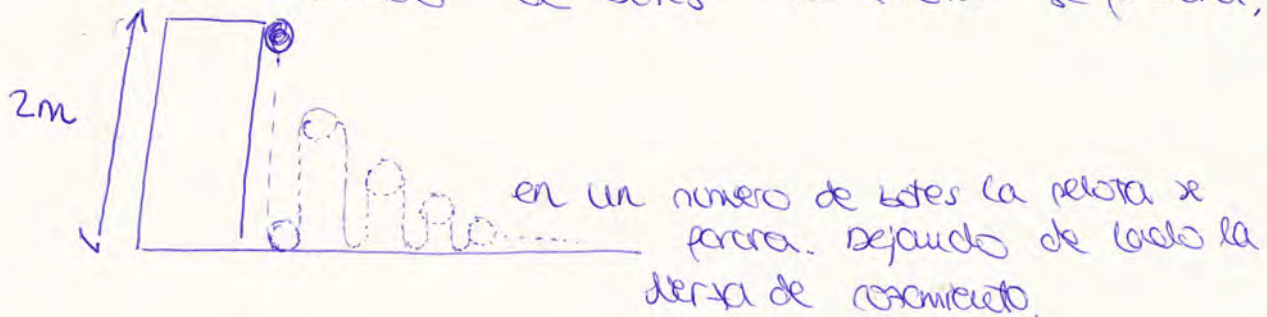 de botes
2m
en un numero de botes la pelota se
parara. Dejando de lado la
de rozamiento.